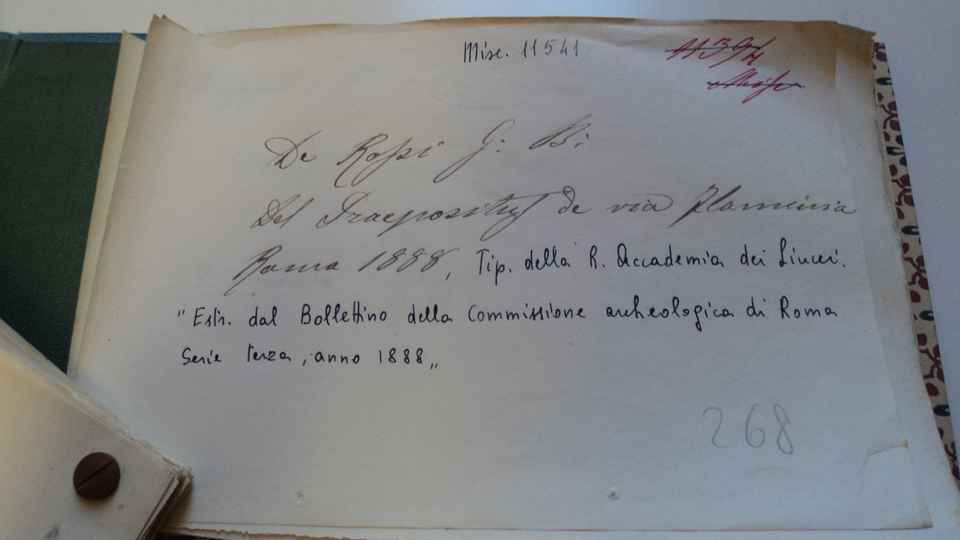 Misc. 11541
De Rossi G: B:
Del Praepositus de via Flaminia
Roma 1888, Tip. della R. Accademia dei Lincei.
"Estr. dal Bollettino della Commissione archeologica di Roma
Serie terza, anno 1888„
268